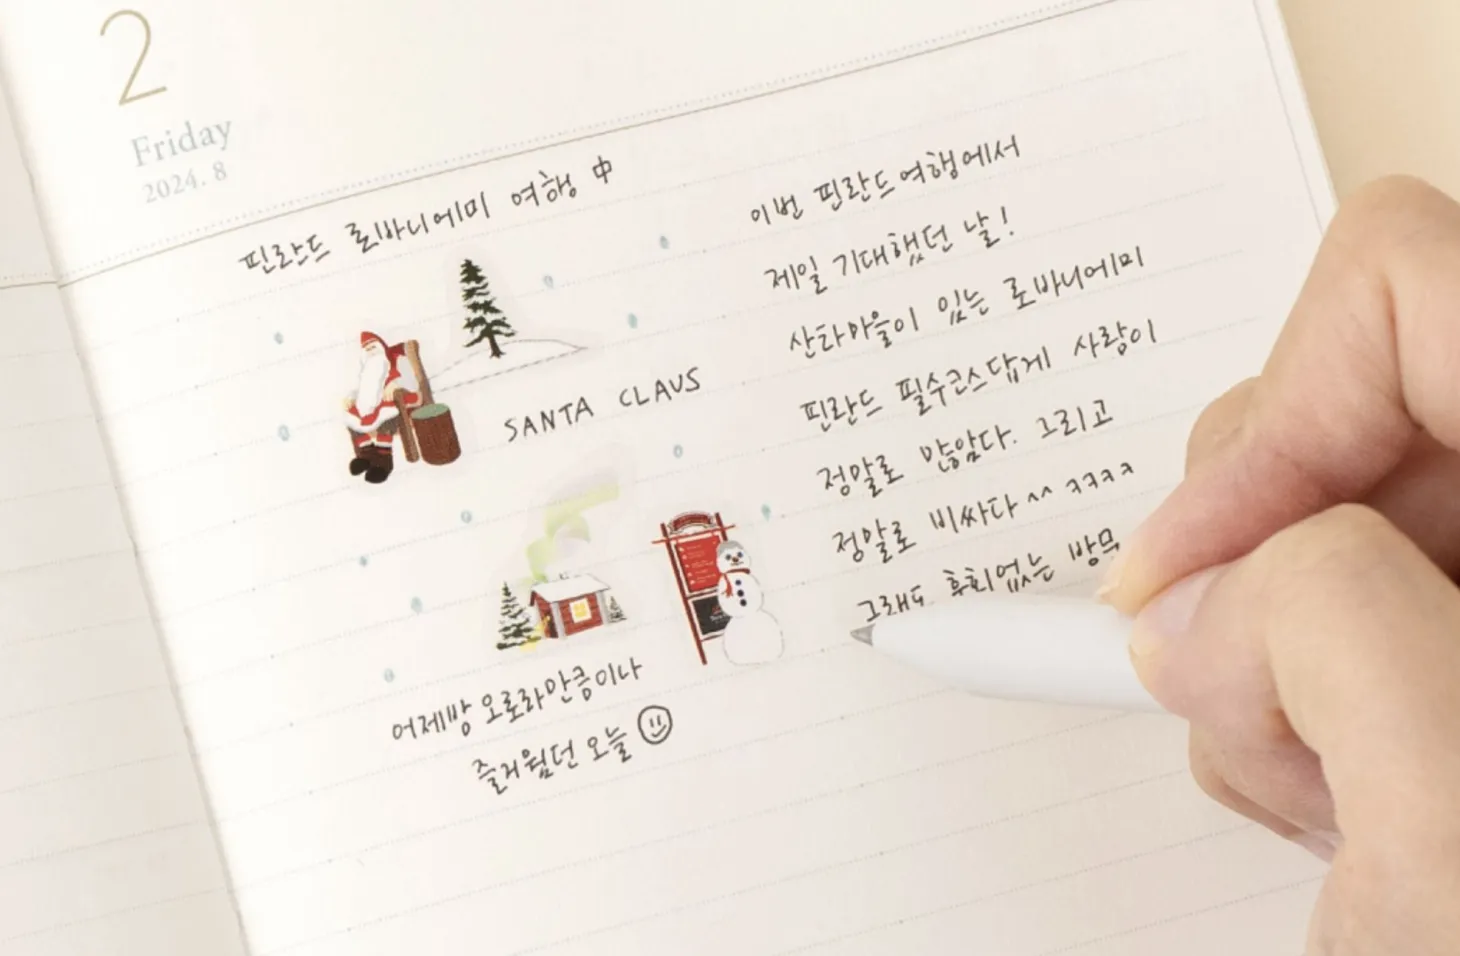 2
Friday
2024. 8
핀란드 로바니에미 여행 中
SANTA CLAUS
어제밤 오로라만큼이나
즐거웠던 오늘
이번 핀란드여행에서
제일 기대했던 날!
산타마을이 있는 로바니에미
핀란드 필수코스답게 사람이
정말로 많았다. 그리고
정말로 비싸다 ^^ ㅋㅋㅋㅋ
그래도 후회없는 방문